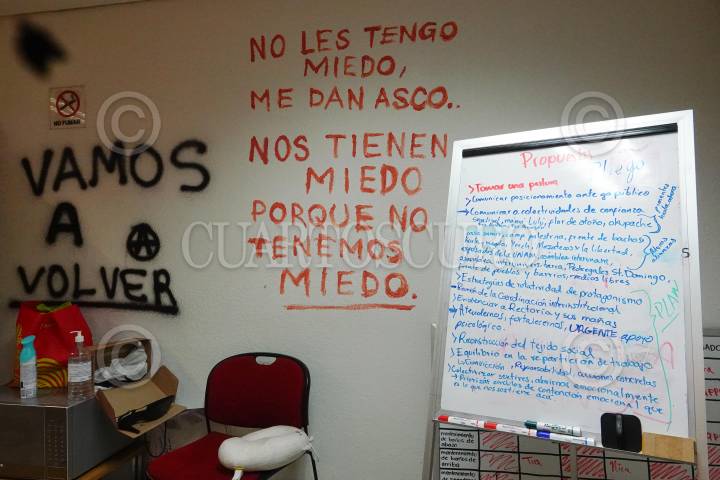 NO FUMAR
VAMOS
A
VOLVER
NO LES TENGO
MIEDO,
ME DAN ASCO..
NOS TIENEN
MIEDO
PORQUE NO
TENEMOS
MIEDO.
CUARTOSCURO
Propuesta Pliego
> Tomar una postura
> Comunicar posicionamiento ante go público
→ Comunicar a colectividades de confianza
flor de otoño, okupache
palestina, presa de bachos
y la libertad,
de la UNAM, asamblea interuam,
Pedregales St. Domingo,
frente de pueblos y barrios, medios libres
> Estrategias de rotatividad de protagonismo
de la Coordinación interinstitucional
> Evidenciar a Rectoría y sus mañas
→ Atendernos, fortalecernos, URGENTE apoyo
psicológico.
> Reconstrucción del tejido social
> Equilibrio en la repartición de trabajo
responsabilidad, acciones concretas
> Colectivizar sentires, abrirnos emocionalmente
→ Priorizar círculos de contención emocional que
es lo que nos sostiene acá
PLAN
mantenimiento
de baños de
abajo
mantenimiento
de baños de
arriba